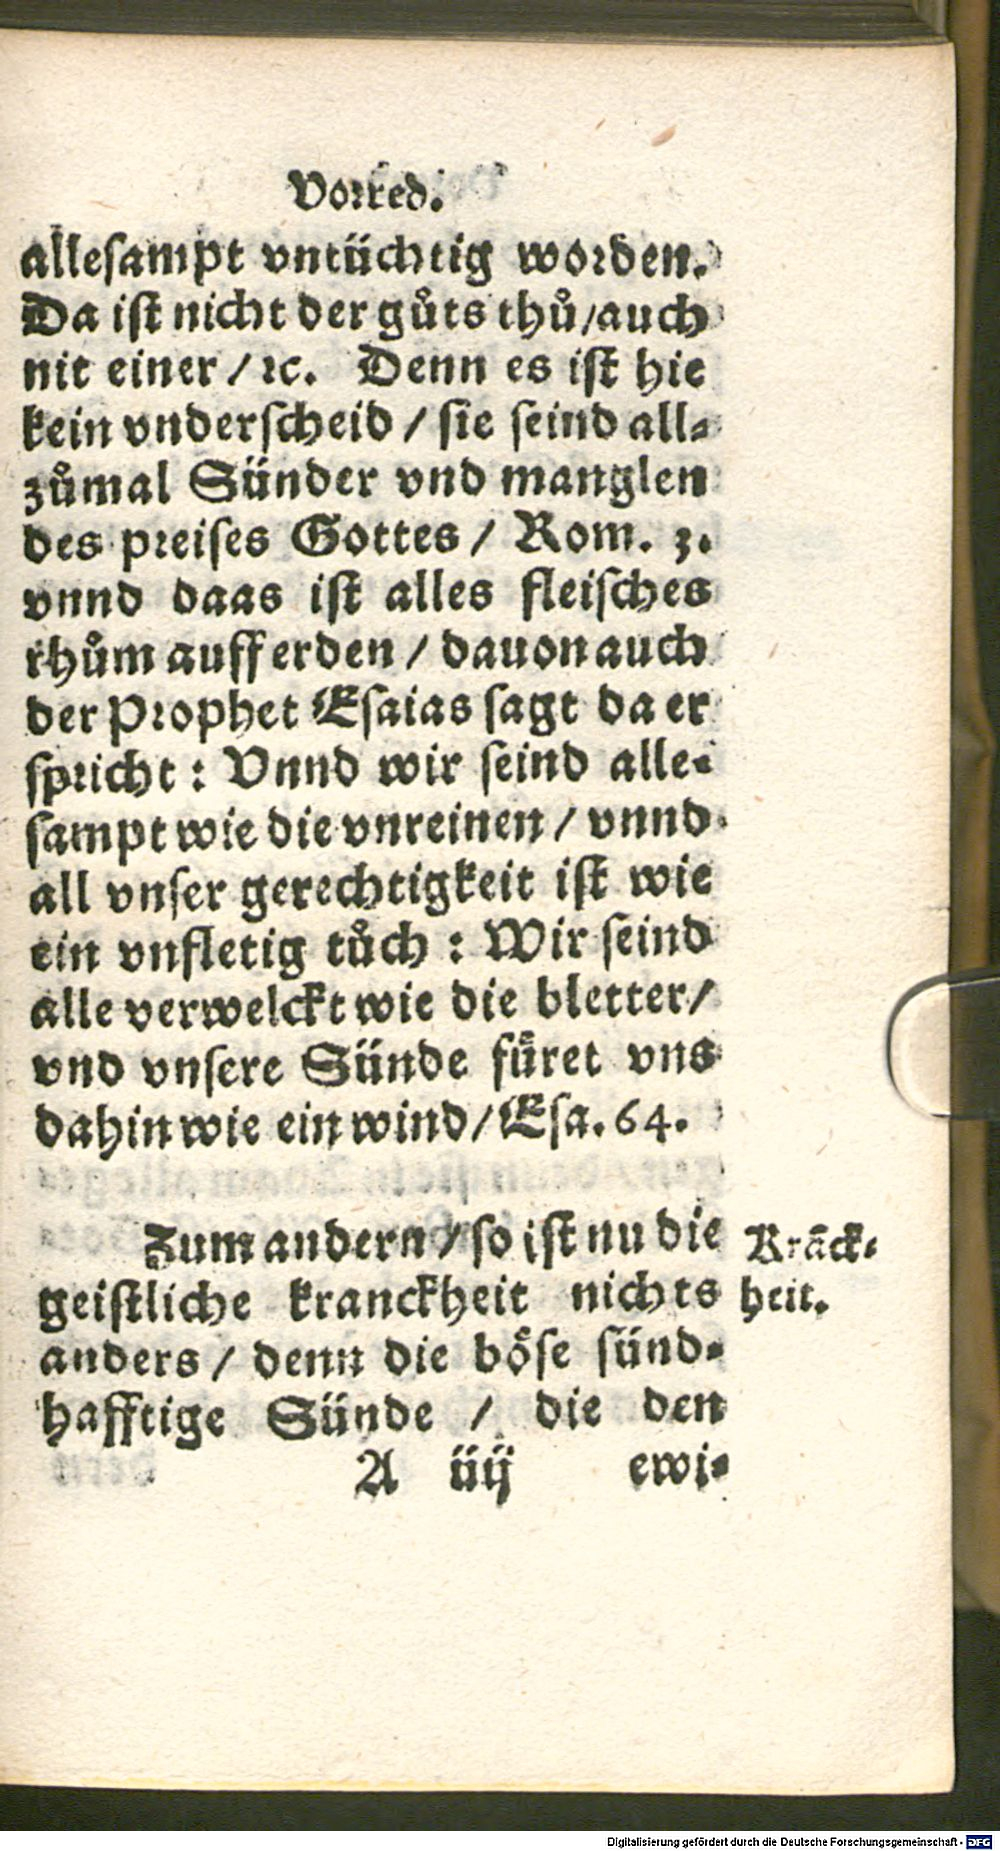 Vorred.
alleſampt vntüchtig worden.
Da iſt nicht der gůts thů/auch
nit einer / ꝛc. Denn es iſt hie
kein vnderſcheid / ſie ſeind all⸗
zůmal Sünder vnd manglen
des preiſes Gottes / Rom. 3.
vnnd daas iſt alles fleiſches
rhům auff erden / dauon auch
der Prophet Eſaias ſagt da er
ſpricht : Vnnd wir ſeind alle⸗
ſampt wie die vnreinen / vnnd
all vnſer gerechtigkeit iſt wie
ein vnfletig tůch : Wir ſeind
alle verwelckt wie die bletter/
vnd vnſere Sünde fuͤret vns
dahin wie ein wind/ Eſa. 64.
Zum andern / ſo iſt nu die
geiſtliche kranckheit nichts
anders / denn die boͤſe ſünd⸗
hafftige Sünde / die den
Kräck⸗
heit.
A iiij ewi⸗
Digitalisierung gefördert durch die Deutsche Forschungsgemeinschaft - DFG